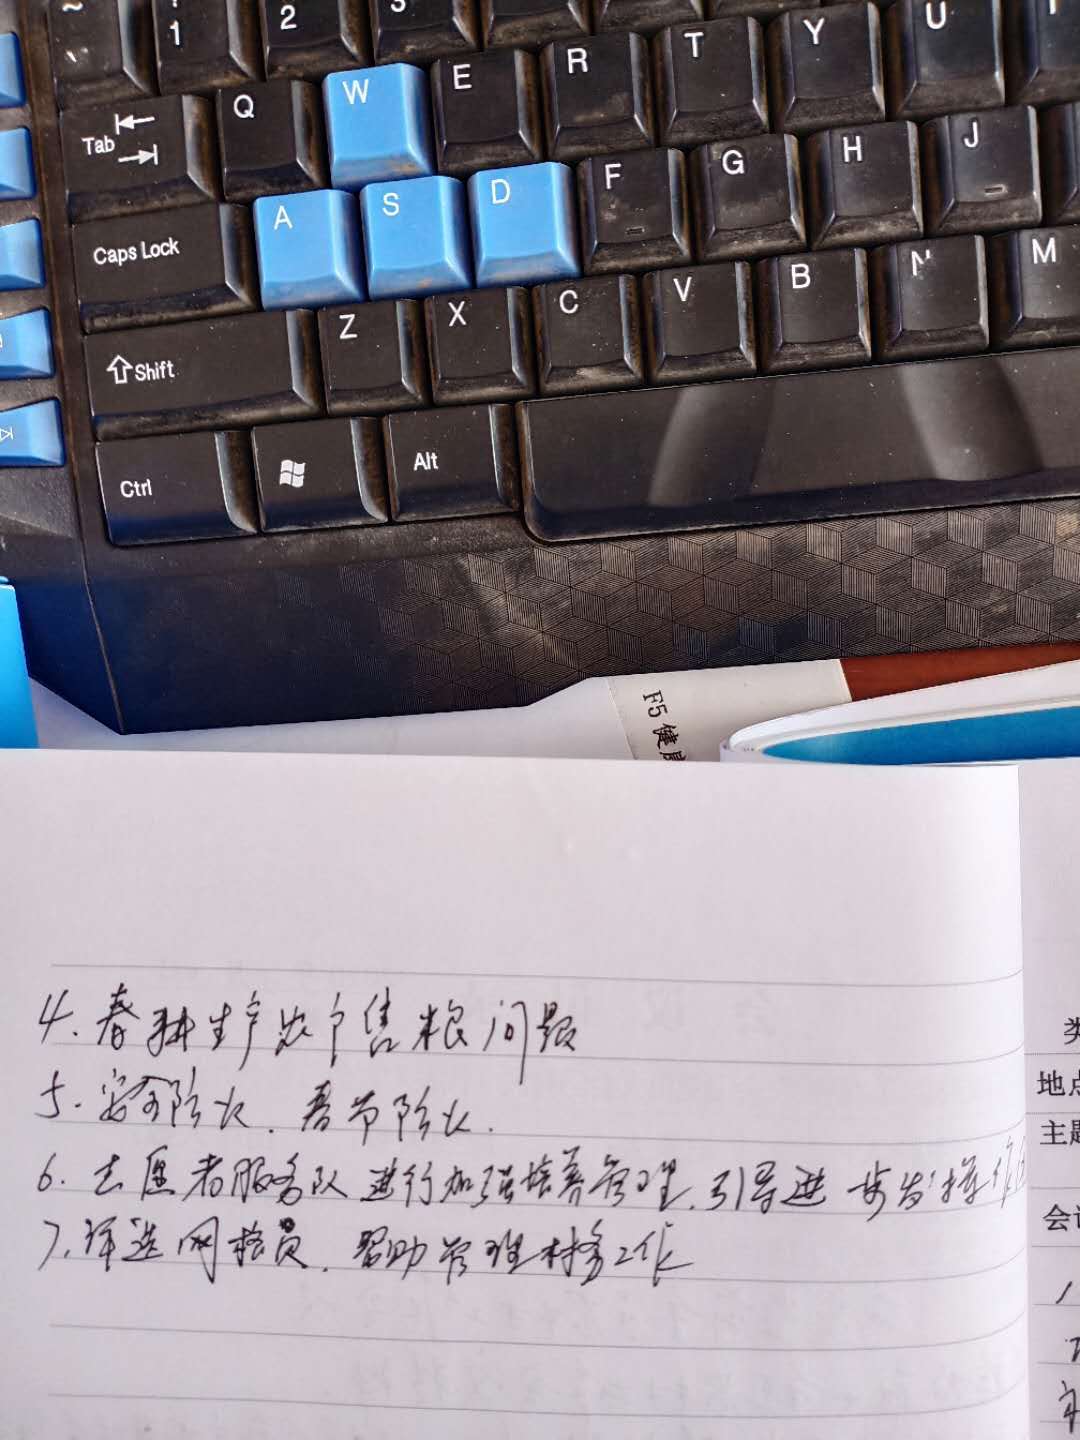 ~
`
1
2
3
Tab
Q
W
E
R
T
Y
U
Caps Lock
A
S
D
F
G
H
J
Shift
Z
X
C
V
B
N
M
Ctrl
Alt
F5 健康
4. 春耕生产农户售粮问题
5. 安全防火. 春节防火.
6. 志愿者服务队进行加强培养管理, 引导进一步发挥作
7. 评选网格员. 帮助管理村务工作
类
地点
主题
会议